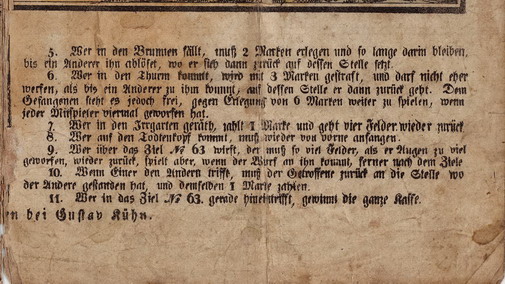 5. Wer in den Brunnen fällt, muß 2 Marken erlegen und so lange darin bleiben,
bis ein Anderer ihn ablöset, wo er sich dann zurück auf dessen Stelle setzt.
6. Wer in den Thurm kommt, wird mit 3 Marken gestraft, und darf nicht eher
werfen, als bis ein Anderer zu ihm kommt, auf dessen Stelle er dann zurück geht. Dem
Gefangenen steht es jedoch frei, gegen Erlegung von 6 Marken weiter zu spielen, wenn
jeder Mitspieler viermal geworfen hat.
7. Wer in den Irrgarten geräth, zahlt 1 Marke und geht vier Felder wieder zurück
8. Wer auf den Todtenkopf kommt, muß wieder von vorne anfangen.
9. Wer über das Ziel № 63 wirft, der muß so viel Felder, als er Augen zu viel
geworfen, wieder zurück, spielt aber, wenn der Wurf an ihn kommt, ferner nach dem Ziele
10. Wenn Einer den Andern trifft, muß der Getroffene zurück an die Stelle wo
der Andere gestanden hat, und demselben 1 Marke zahlen.
11. Wer in das Ziel № 63. gerade hineintrifft, gewinnt die ganze Kasse.
n bei Gustav Kühn.